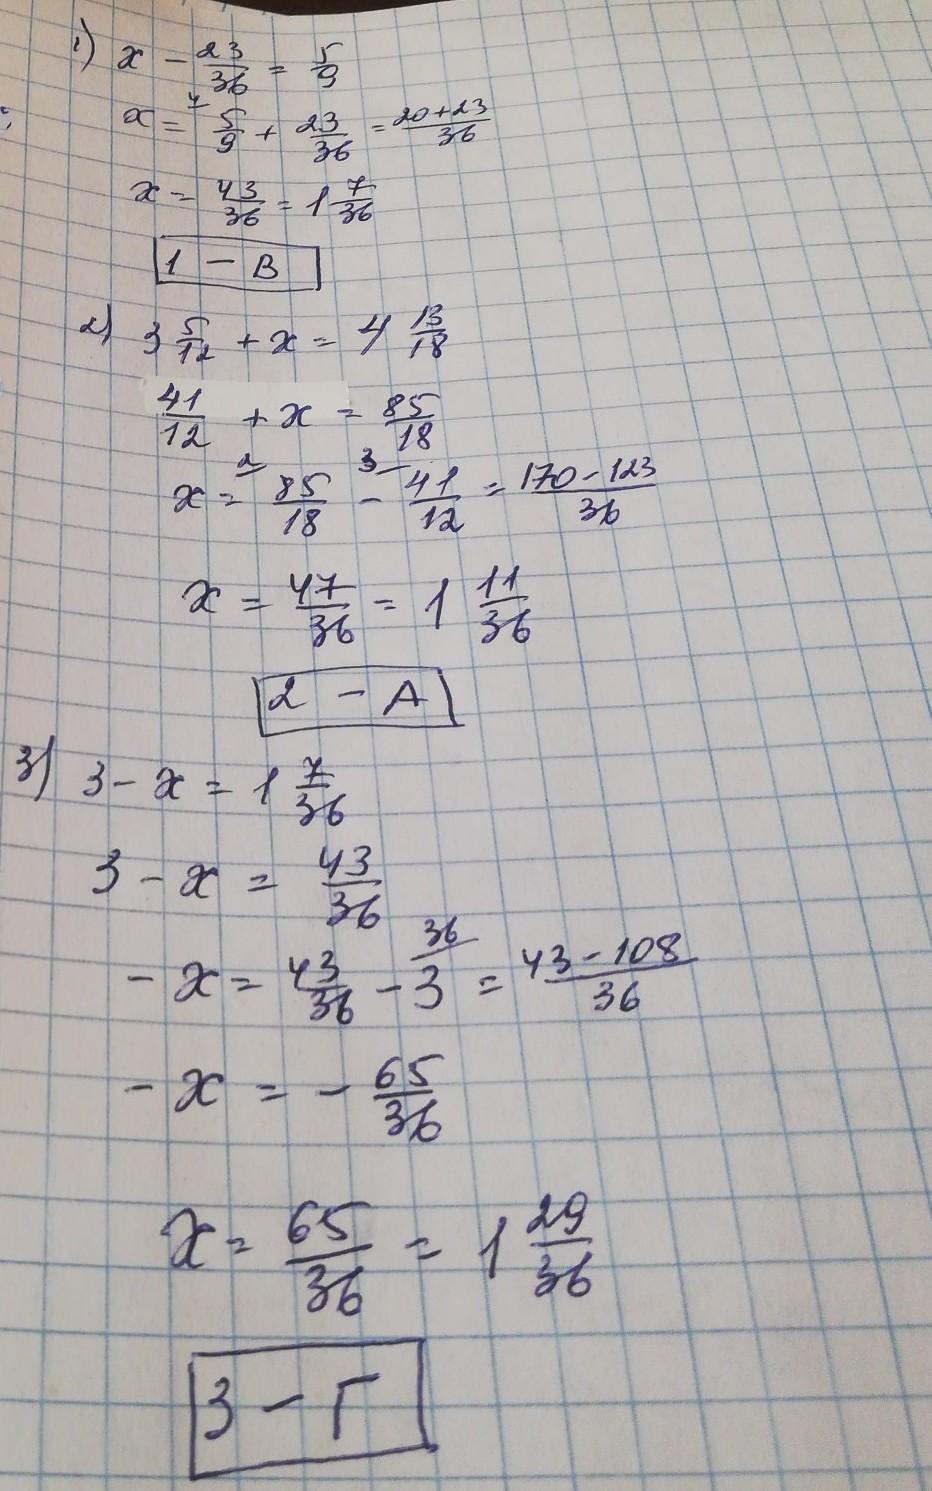 1) x - 23/36 = 5/9
x = 5/9 + 23/36 = 20+23/36
x = 43/36 = 1 7/36
1 - В
2) 3 5/12 + x = 4 13/18
41/12 + x = 85/18
x = 2 85/18 - 3 41/12 = 170-123/36
x = 47/36 = 1 11/36
2 - А
3) 3 - x = 1 7/36
3 - x = 43/36
- x = 43/36 - 36 3 = 43-108/36
- x = - 65/36
x = 65/36 = 1 29/36
3 - Г